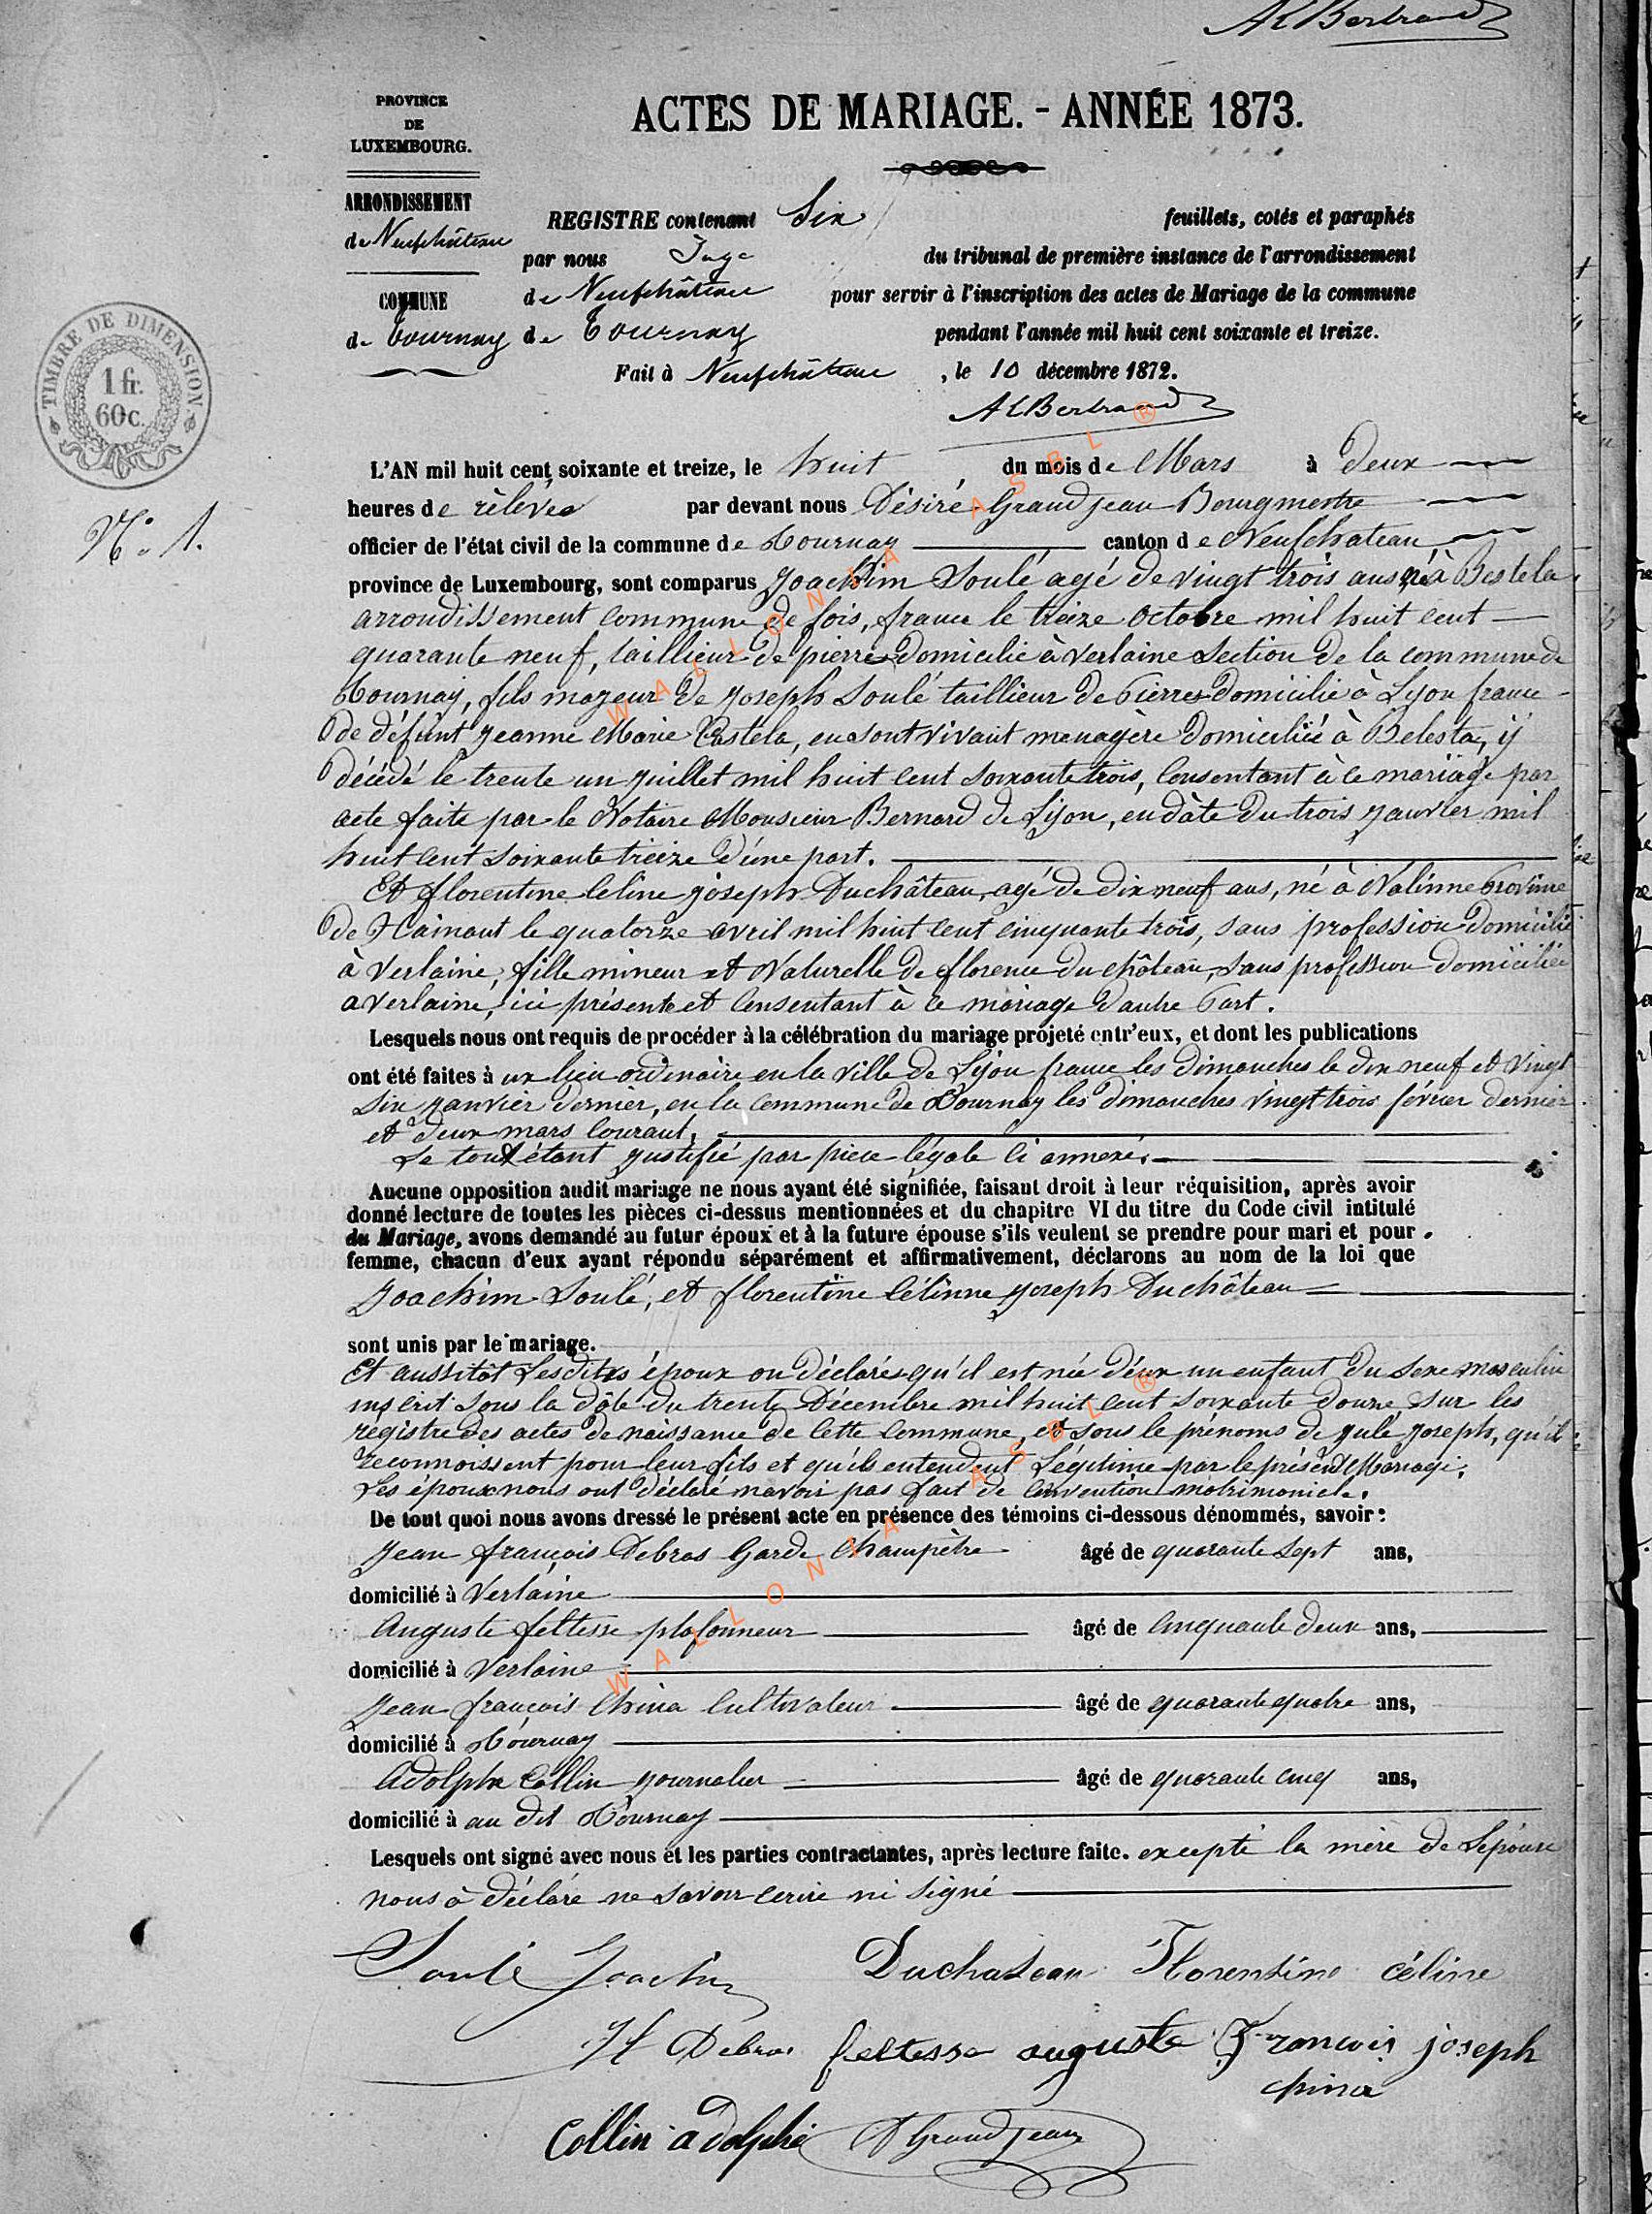 ALBertrand
PROVINCE
DE
LUXEMBOURG.
ACTES DE MARIAGE. - ANNÉE 1873.
ARRONDISSEMENT
de Neufchâteau
COMMUNE
de Tournay
REGISTRE contenant Six feuillets, cotés et paraphés
par nous Juge du tribunal de première instance de l'arrondissement
de Neufchâteau pour servir à l'inscription des actes de Mariage de la commune
de Tournay pendant l'année mil huit cent soixante et treize.
Fait à Neufchâteau, le 10 décembre 1872.
ALBertrand
TIMBRE DE DIMENSION
1 fr.
60c.
N° 1.
L'AN mil huit cent soixante et treize, le huit du mois de Mars à deux
heures de rélévée par devant nous Désiré Grandjean Bourgmestre
officier de l'état civil de la commune de Tournay canton de Neufchateau
province de Luxembourg, sont comparus Joachim Soulé agé de vingt trois ans, né à Bestela
arrondissement commune de fois, france le treize octobre mil huit cent
quarante neuf, taillieur de pierres domicilié à Verlaine Section de la commune de
Tournay, fils majeur de Joseph Soulé taillieur de Pierres domicilié à Lyon france
de défunt Jeanne Marie Castela, en sont vivant menagère domiciliée à Belesta, y
décédé le trente un juillet mil huit cent soixante trois, Consentant à ce mariage par
acte faite par le Notaire Monsieur Bernard de Lyon, en dâte du trois Janvier mil
huit cent soixante treize d'une part.
Et florentine Celine joseph Duchâteau, agé de dix neuf ans, né à Nalinne Province
de Hainaut le quatorze avril mil huit cent cinquante trois, sans profession domicilié
à Verlaine, fille mineur et Naturelle de florence du château, sans profession domiciliée
a Verlaine, ici présente et Consentant à ce mariage d'autre Part.
Lesquels nous ont requis de procéder à la célébration du mariage projeté entr'eux, et dont les publications
ont été faites à ux lieu ordinaire en la ville de Lyon france les dimanches le dix neuf et vingt
Six Janvier dernier, en la Commune de Tournay les dimanches vingt trois février dernier
et deux mars Courant.
Le tout étant justifié par piece légale Ci annexé.
Aucune opposition audit mariage ne nous ayant été signifiée, faisant droit à leur réquisition, après avoir
donné lecture de toutes les pièces ci-dessus mentionnées et du chapitre VI du titre du Code civil intitulé
du Mariage, avons demandé au futur époux et à la future épouse s'ils veulent se prendre pour mari et pour
femme, chacun d'eux ayant répondu séparément et affirmativement, déclarons au nom de la loi que
Joachim Soulé, et florentine Célinne joseph Duchâteau
sont unis par le mariage.
Et aussitôt Lesdits époux on déclarés qu'il est née d'eux un enfant du Sexe masculin
inscrit sous la dâte du trente Décembre mil huit cent soixante douze sur les
régistre des actes de naissance de Cette Commune, et sous le prénoms de jule Joseph, qu'ils
reconnoissent pour leur fils et qu'ils entendent Légitime par le présent Mariage.
Les époux nous ont déclaré n'avoir pas fait de Convention matrimoniele.
De tout quoi nous avons dressé le présent acte en présence des témoins ci-dessous dénommés, savoir :
Jean françois Debras Garde Champètre âgé de quarante Sept ans,
domicilié à Verlaine
Auguste feltesse plafonneur âgé de Cinquante deux ans,
domicilié à Verlaine
Jean françois China Cultivateur âgé de quarante quatre ans,
domicilié à Tournay
Adolphe Collin journalier âgé de quarante cinq ans,
domicilié à au dit Tournay
Lesquels ont signé avec nous et les parties contractantes, après lecture faite. excepté la mère de Lépouse
nous à déclaré ne savoir écrire ni signé
Soulé Joachim Duchateau Florentine céline
Jf Debras feltesse auguste Francois joseph
china
Collin adolphe DGrandjean
WALLONIA ASBL ®
WALLONIA ASBL ®